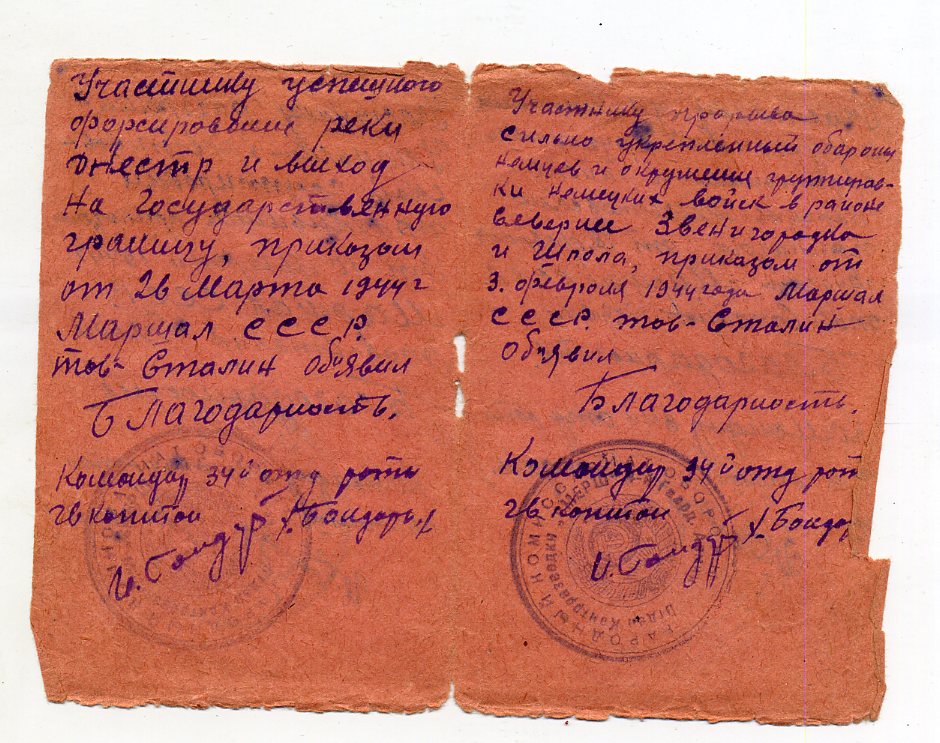 Участнику успешного
форсирование реки
Днестр и выход
на Государственную
границу, приказом
от 26 Марта 1944 г
Маршал СССР.
тов- Сталин об'явил
Благодарность.
Командир 34й отд роты
гв капитан /Бондарь/
Участнику прорыва
сильно укрепленный обороны
немцев и окружения группиров-
ки немецких войск в районе
севернее Звенигородка
и Шпола, приказом от
3. февраля 1944 года Маршал
СССР. тов- Сталин
об'явил
Благодарность.
Командир 34й отд рот
гв капитан /Бондар
НАРОДНЫЙ КОМИССАРИАТ ОБОРОНЫ
Отдел Контрразведки